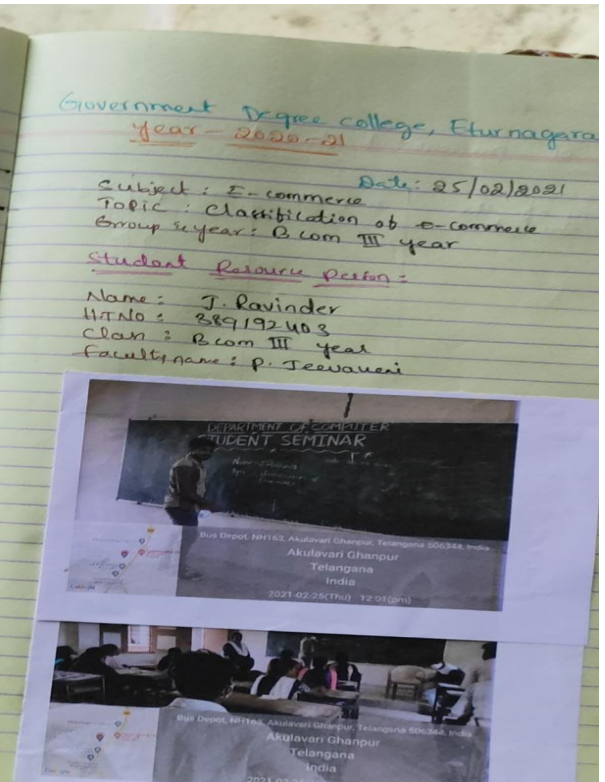 Government Degree college, Eturnagara
Year - 2020-21
Date: 25/02/2021
Subject : E-commerce
Topic : Classification of e-commerce
Group & year: B com III year
Student Resource Person:
Name: J. Ravinder
H.T.NO : 389192403
Class : B com III year
Faculty name: P. Jeevaveni
DEPARTMENT OF COMPUTER
STUDENT SEMINAR
Bus Depot, NH163, Akulavari Ghanpur, Telangana 506344, India
Akulavari Ghanpur
Telangana
India
2021-02-25(Thu) 12:01(pm)
Google
Bus Depot, NH163, Akulavari Ghanpur, Telangana 506344, India
Akulavari Ghanpur
Telangana
India
Google